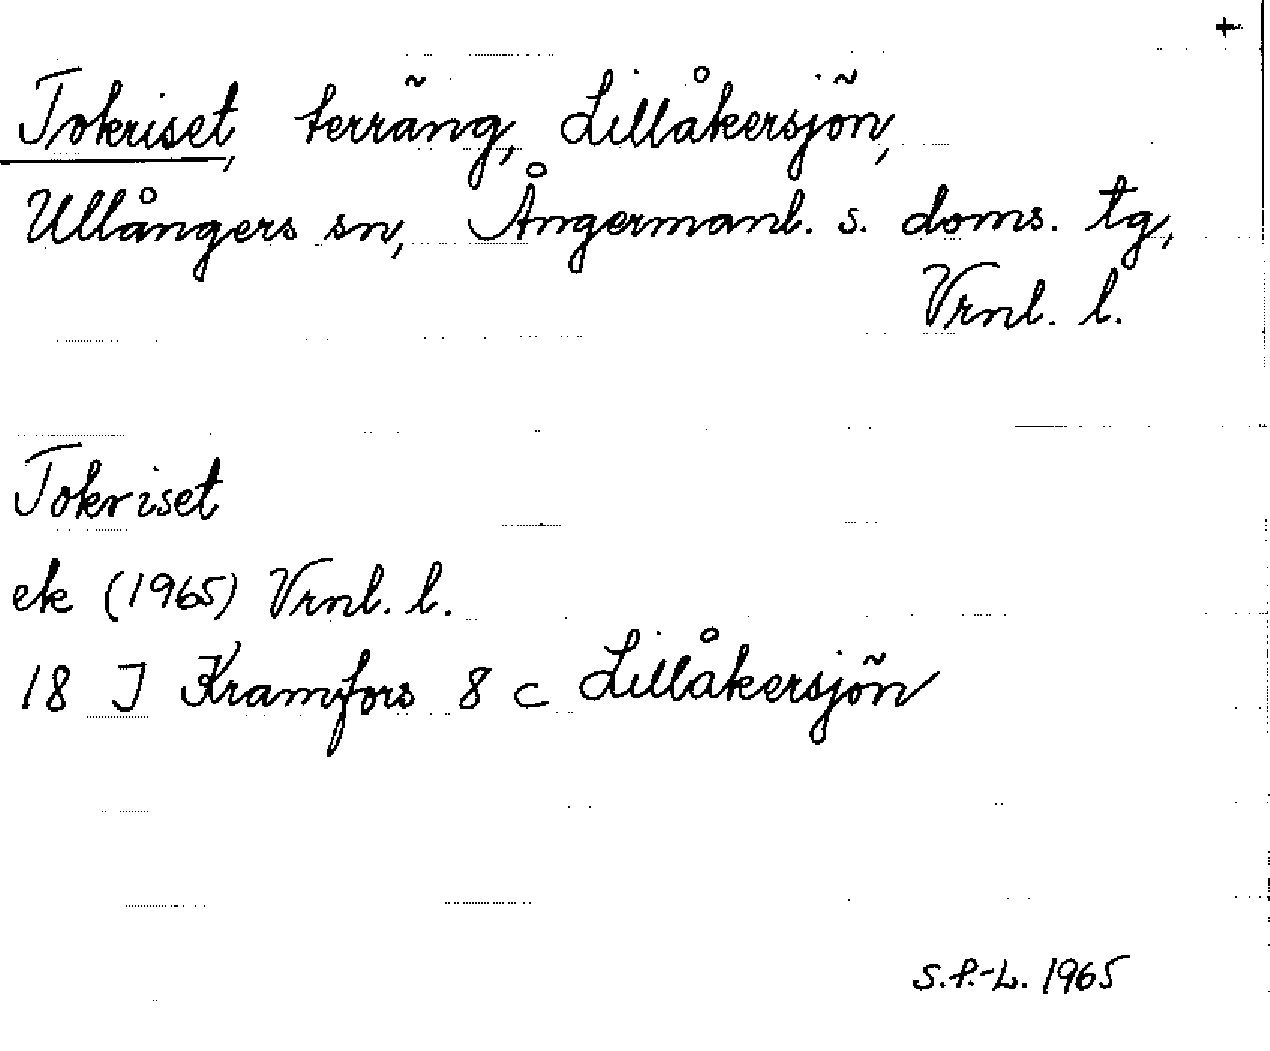 +
Tokriset, terräng, Lillåkersjön,
Ullångers sn, Ångermanl. s. doms. tg,
Vrnl. l.
Tokriset
ek (1965) Vrnl. l.
18 J Kramfors 8 c Lillåkersjön
S.P.-L. 1965